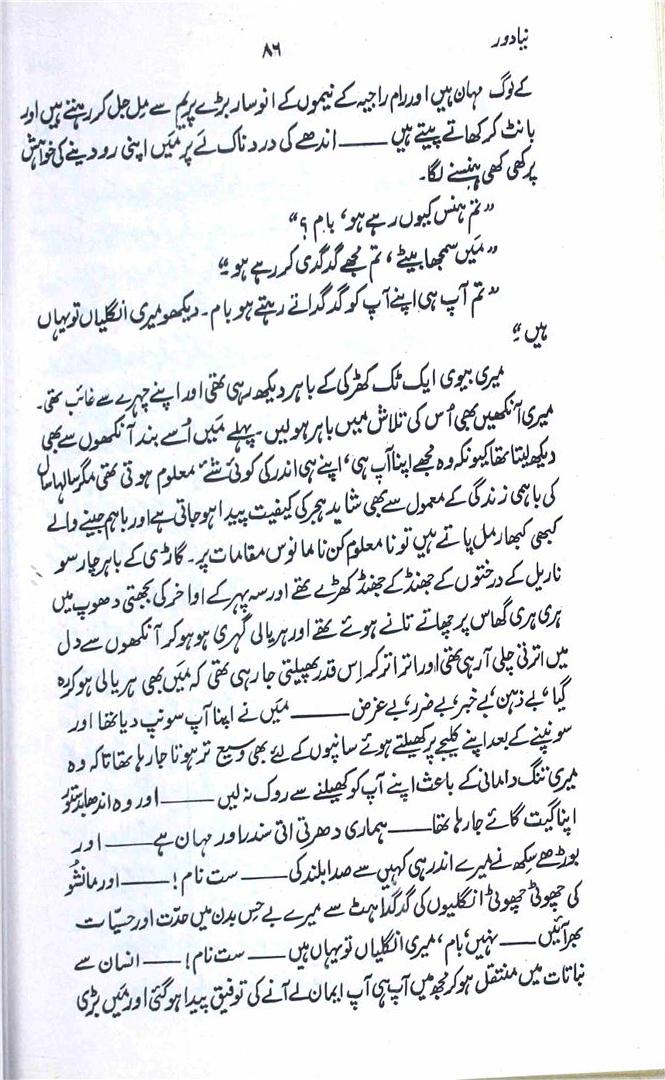 نیا دور
۸۶
کے لوگ مہان ہیں اور رام راجیہ کے نیموں کے انوسار بڑے پریم سے مل جل کر رہتے ہیں اور
بانٹ کر کھاتے پیتے ہیں —— اندھے کی دردناک لے پر مَیں اپنی رو دینے کی خواہش
پر کھی کھی ہنسنے لگا۔
”تم ہنس کیوں رہے ہو، بام؟“
”مَیں سمجھا بیٹے، تم مجھے گدگدی کر رہے ہو۔“
”تم آپ ہی اپنے آپ کو گدگداتے رہتے ہو بام۔ دیکھو میری انگلیاں تو یہاں
ہیں۔“
میری بیوی ایک ٹک کھڑکی کے باہر دیکھ رہی تھی اور اپنے چہرے سے غائب تھی۔
میری آنکھیں بھی اُس کی تلاش میں باہر ہو لیں۔ پہلے مَیں اُسے بند آنکھوں سے بھی
دیکھ لیتا تھا کیونکہ وہ مجھے اپنا آپ ہی، اپنے ہی اندر کی کوئی شے معلوم ہوتی تھی مگر سالہا سال
کی باہمی زندگی کے معمول سے بھی شاید ہجر کی کیفیت پیدا ہو جاتی ہے اور باہم جینے والے
کبھی کبھار مل پاتے ہیں تو نا معلوم کن نامانوس مقامات پر۔ گاڑی کے باہر چار سو
ناریل کے درختوں کے جھنڈ کے جھنڈ کھڑے تھے اور سہ پہر کے اواخر کی بجھتی دھوپ میں
ہری ہری گھاس پر چھاتے تانے ہوئے تھے اور ہریالی گہری ہو ہو کر آنکھوں سے دل
میں اترتی چلی آ رہی تھی اور اتر اتر کر اِس قدر پھیلتی جا رہی تھی کہ مَیں بھی ہریالی ہو کر رہ
گیا، بے ذہن، بے خبر، بے ضرر، بے غرض —— مَیں نے اپنا آپ سونپ دیا تھا اور
سونپنے کے بعد اپنے کلیجے پر کھیلتے ہوئے سانپوں کے لئے بھی وسیع تر ہوتا جا رہا تھا تاکہ وہ
میری تنگ دامانی کے باعث اپنے آپ کو کھیلنے سے روک نہ لیں —— اور وہ اندھا بدستور
اپنا گیت گائے جا رہا تھا —— ہماری دھرتی اتی سندر اور مہان ہے —— اور
بوڑھے سکھ نے میرے اندر ہی کہیں سے صدا بلند کی —— ست نام! —— اور مانشُو
کی چھوٹی چھوٹی انگلیوں کی گدگداہٹ سے میرے بے حِس بدن میں حدّت اور حسیّات
بھر آئیں —— نہیں، بام، میری انگلیاں تو یہاں ہیں —— ست نام! —— انسان سے
نباتات میں منتقل ہو کر مجھ میں آپ ہی آپ ایمان لے آنے کی توفیق پیدا ہو گئی اور مَیں بڑی